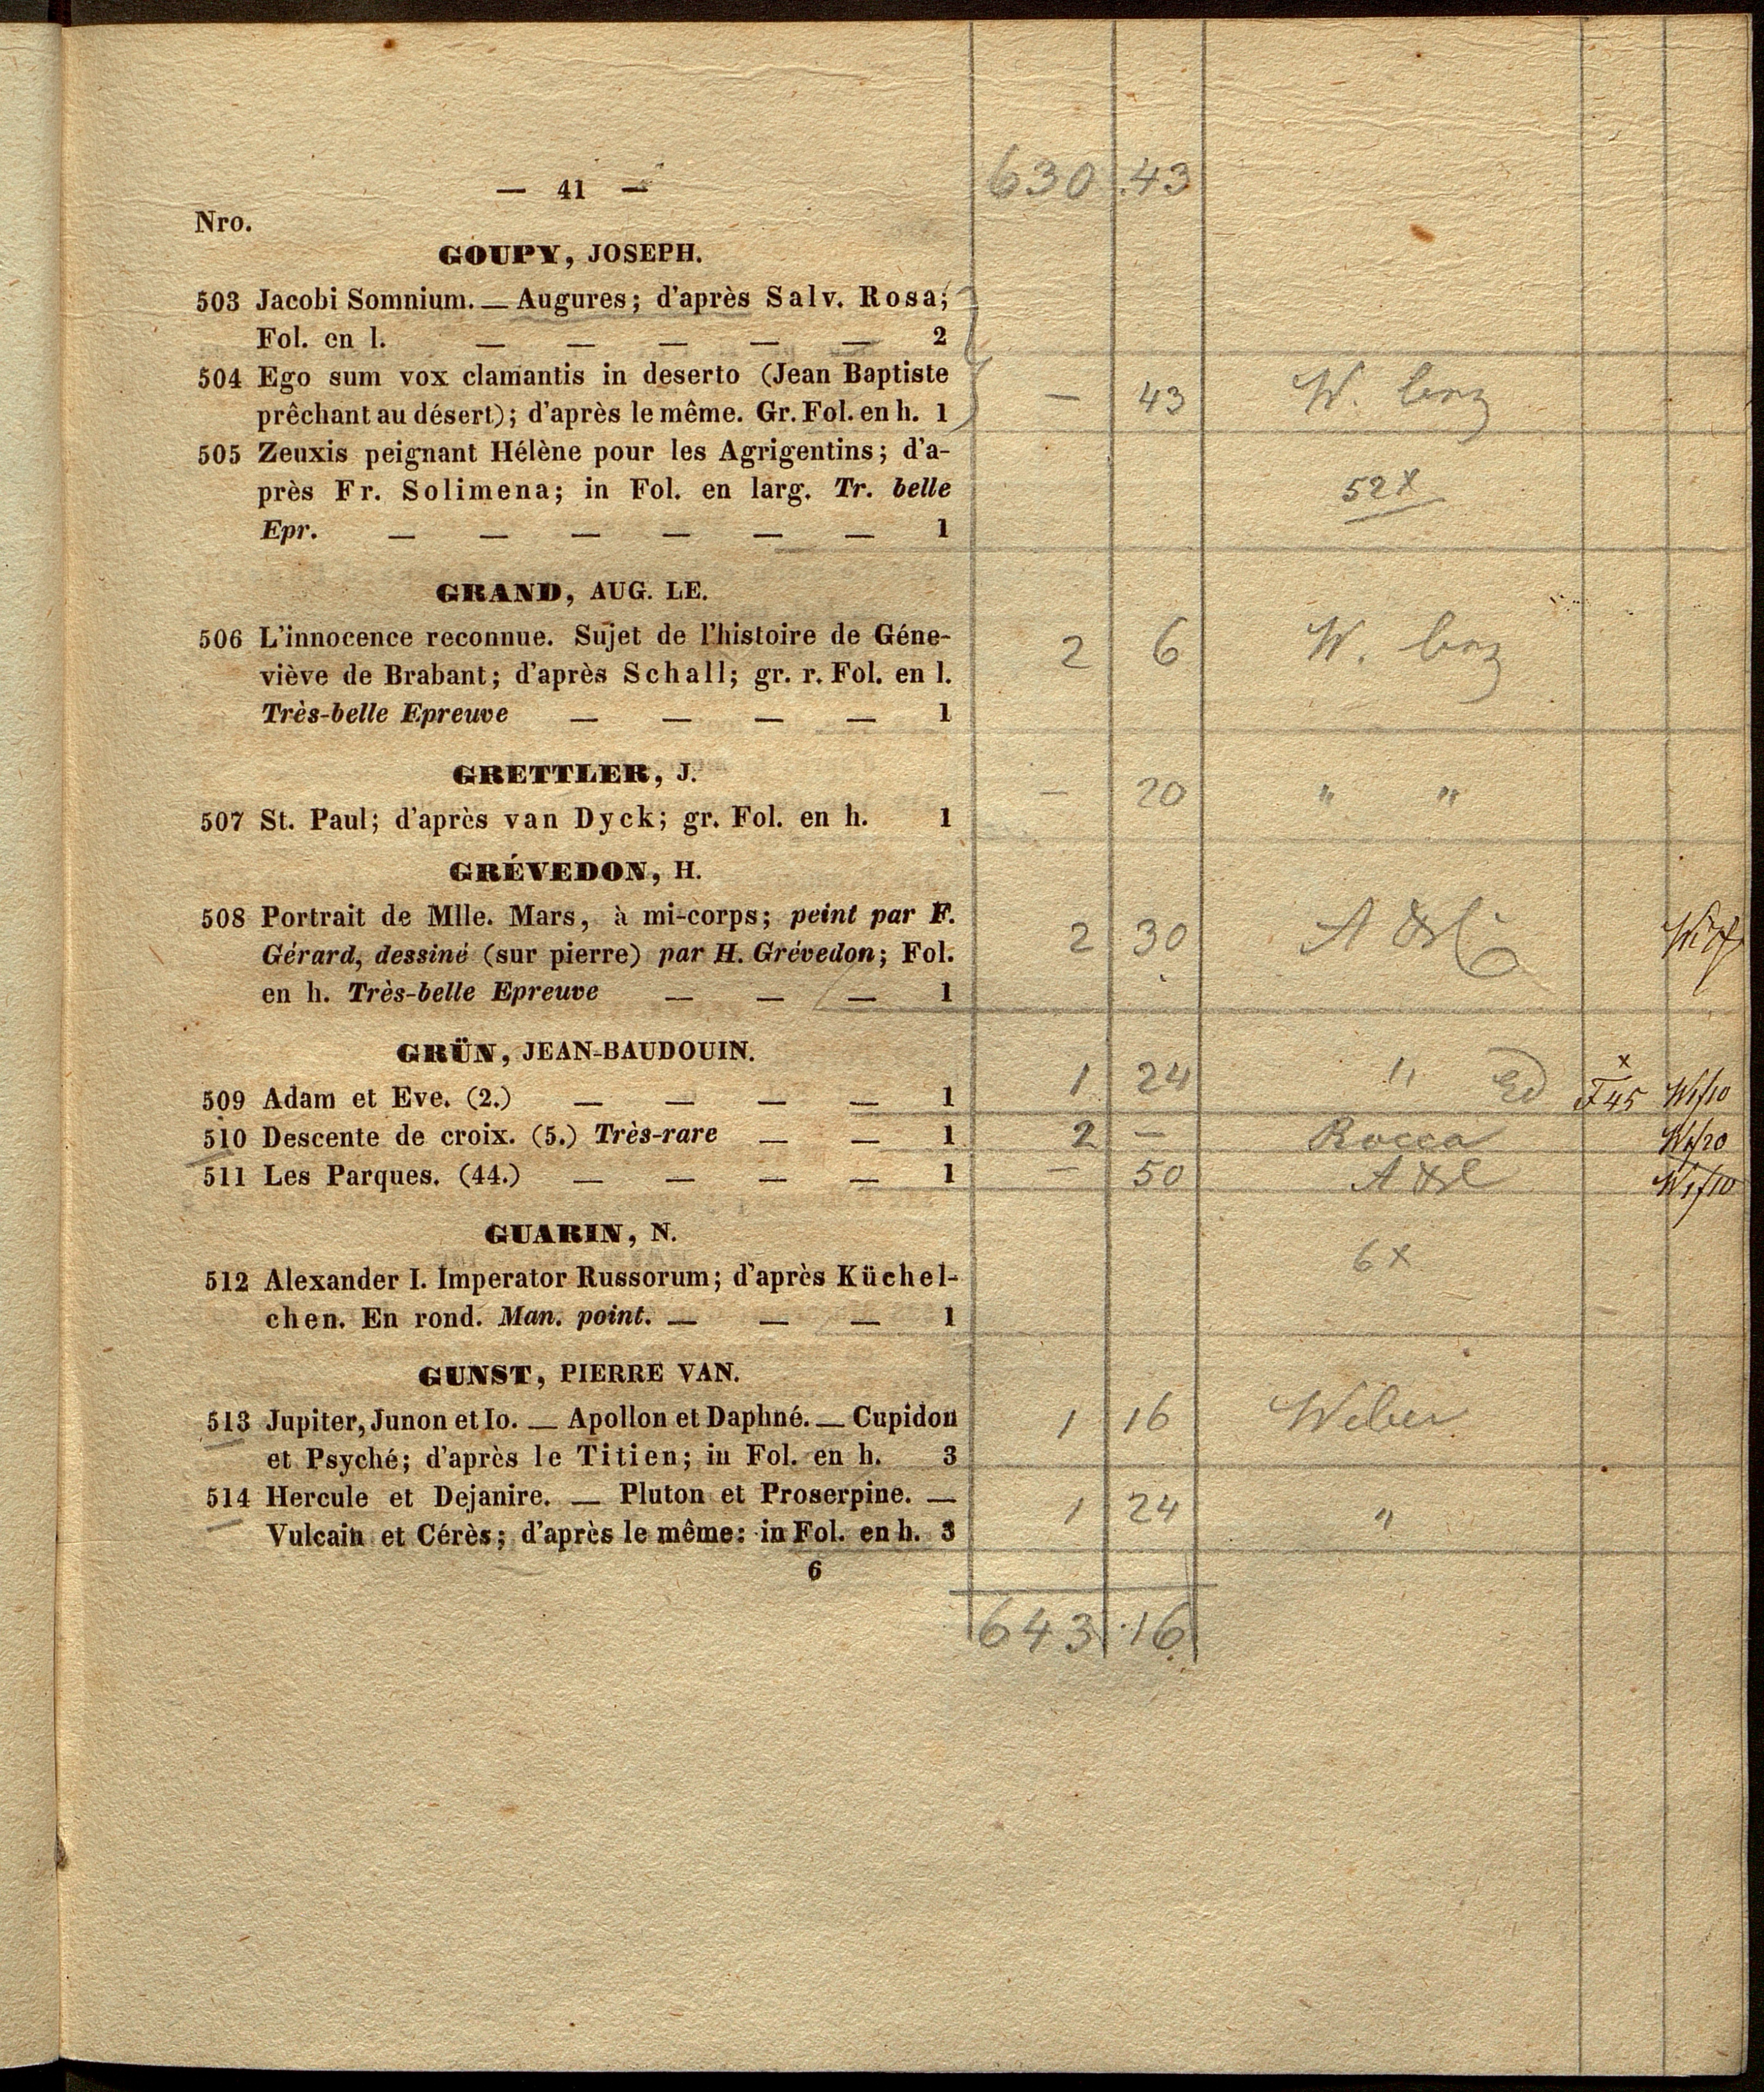 630 .43
— 41 —
Nro.
GOUPY, JOSEPH.
503 Jacobi Somnium. — Augures; d'après Salv. Rosa;
Fol. en l. — — — — — 2
504 Ego sum vox clamantis in deserto (Jean Baptiste
prêchant au désert); d'après le même. Gr. Fol. en h. 1 — 43 W.
505 Zeuxis peignant Hélène pour les Agrigentins; d'a-
près Fr. Solimena; in Fol. en larg. Tr. belle 52x
Epr. — — — — — — 1
GRAND, AUG. LE.
506 L'innocence reconnue. Sujet de l'histoire de Géne- 2 6 W.
viève de Brabant; d'après Schall; gr. r. Fol. en l.
Très-belle Epreuve — — — — 1
GRETTLER, J.
507 St. Paul; d'après van Dyck; gr. Fol. en h. 1 — 20 " "
GRÉVEDON, H.
508 Portrait de Mlle. Mars, à mi-corps; peint par F.
Gérard, dessiné (sur pierre) par H. Grévedon; Fol. 2 30
en h. Très-belle Epreuve — — — 1
GRÜN, JEAN-BAUDOUIN.
509 Adam et Eve. (2.) — — — — 1 1 24 "
510 Descente de croix. (5.) Très-rare — — 1 2 — Rocca
511 Les Parques. (44.) — — — — 1 — 50
GUARIN, N.
512 Alexander I. Imperator Russorum; d'après Küchel- 6x
chen. En rond. Man. point. — — — 1
GUNST, PIERRE VAN.
513 Jupiter, Junon et Io. — Apollon et Daphné. — Cupidon 1 16 Weber
et Psyché; d'après le Titien; in Fol. en h. 3
514 Hercule et Dejanire. — Pluton et Proserpine. — 1 24 "
Vulcain et Cérès; d'après le même: in Fol. en h. 3
6
643 .16